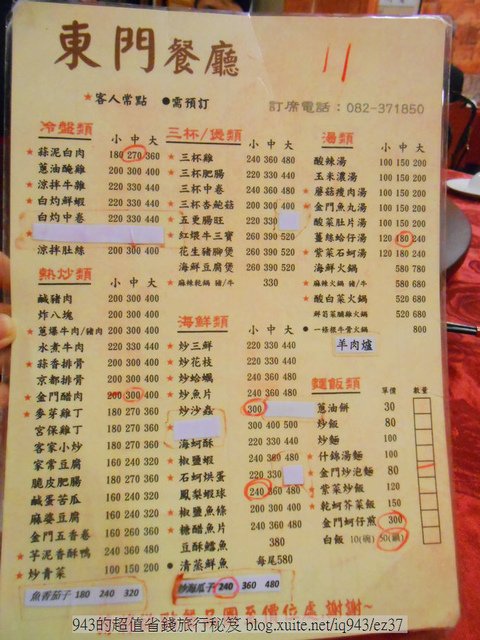 東門餐廳
11
★客人常點 ●需預訂
訂席電話：082-371850
冷盤類
小 中 大
★蒜泥白肉 180 270 360
蔥油醃雞 200 300 400
★涼拌牛雜 220 330 440
★白灼鮮蝦 220 330 440
白灼中卷 220 330 440
★
涼拌肚絲 200 300 400
熱炒類
小 中 大
鹹豬肉 200 300 400
炸八塊 200 300 400
★蔥爆牛肉/豬肉 200 300 400
水煮牛肉 220 330 440
★蒜香排骨 200 300 400
京都排骨 200 300 400
★金門醋肉 200 300 400
★麥芽雞丁 180 270 360
宮保雞丁 180 270 360
客家小炒 180 270 360
家常豆腐 160 240 320
脆皮肥腸 180 270 360
鹹蛋苦瓜 160 240 320
麻婆豆腐 160 240 320
金門五香卷 160 260 360
★芋泥香酥鴨 240 360 480
★炒青菜 100 150 200
魚香茄子 180 240 320
三杯/煲類
小 中 大
★三杯雞 240 360 480
★三杯肥腸 220 330 440
★三杯中卷 240 360 480
★三杯杏鮑菇 200 300 400
★五更腸旺 220 330
★紅煨牛三寶 260 390 520
★花生豬腳煲 260 390 520
海鮮豆腐煲 260 390 520
★麻辣乾鍋 豬/牛 330
海鮮類
小 中 大
★炒三鮮 220 330 440
★炒花枝 240 360 480
★炒蛤蠣 240 360 480
★炒魚片 240 360 480
炒沙蟲 300
★ 300 400 500
海蚵酥 220 330 440
★椒鹽蝦 240 360 480
★石蚵烘蛋 220 330
鳳梨蝦球 240 360 480
★椒鹽魚條 240 360 480
★糖醋魚片 240 360 480
豆酥鱈魚 380
●清蒸鮮魚 每尾580
炒海瓜子 240 360 480
湯類
小 中 大
酸辣湯 100 150 200
玉米濃湯 100 150 200
★蘑菇瘦肉湯 100 150 200
★金門魚丸湯 100 150 200
酸菜肚片湯 100 150 200
★薑絲蛤仔湯 120 180 240
★紫菜石蚵湯 120 180 240
海鮮火鍋 580 780
★麻辣火鍋 豬/牛 520 680
★酸白菜火鍋 520 680
鮮菇菜脯雞火鍋 520 680
●一條根牛骨火鍋 800
羊肉爐
麵飯類
單價 數量
★蔥油餅 30
炒飯 80
炒麵 100
★什錦湯麵 100
★金門炒泡麵 80
紫菜炒飯 120
★乾蚵芥菜飯 150
金門蚵仔煎 300
白飯 10(碗) 50(鍋)
943的超值省錢旅行秘笈 blog.xuite.net/iq943/ez37